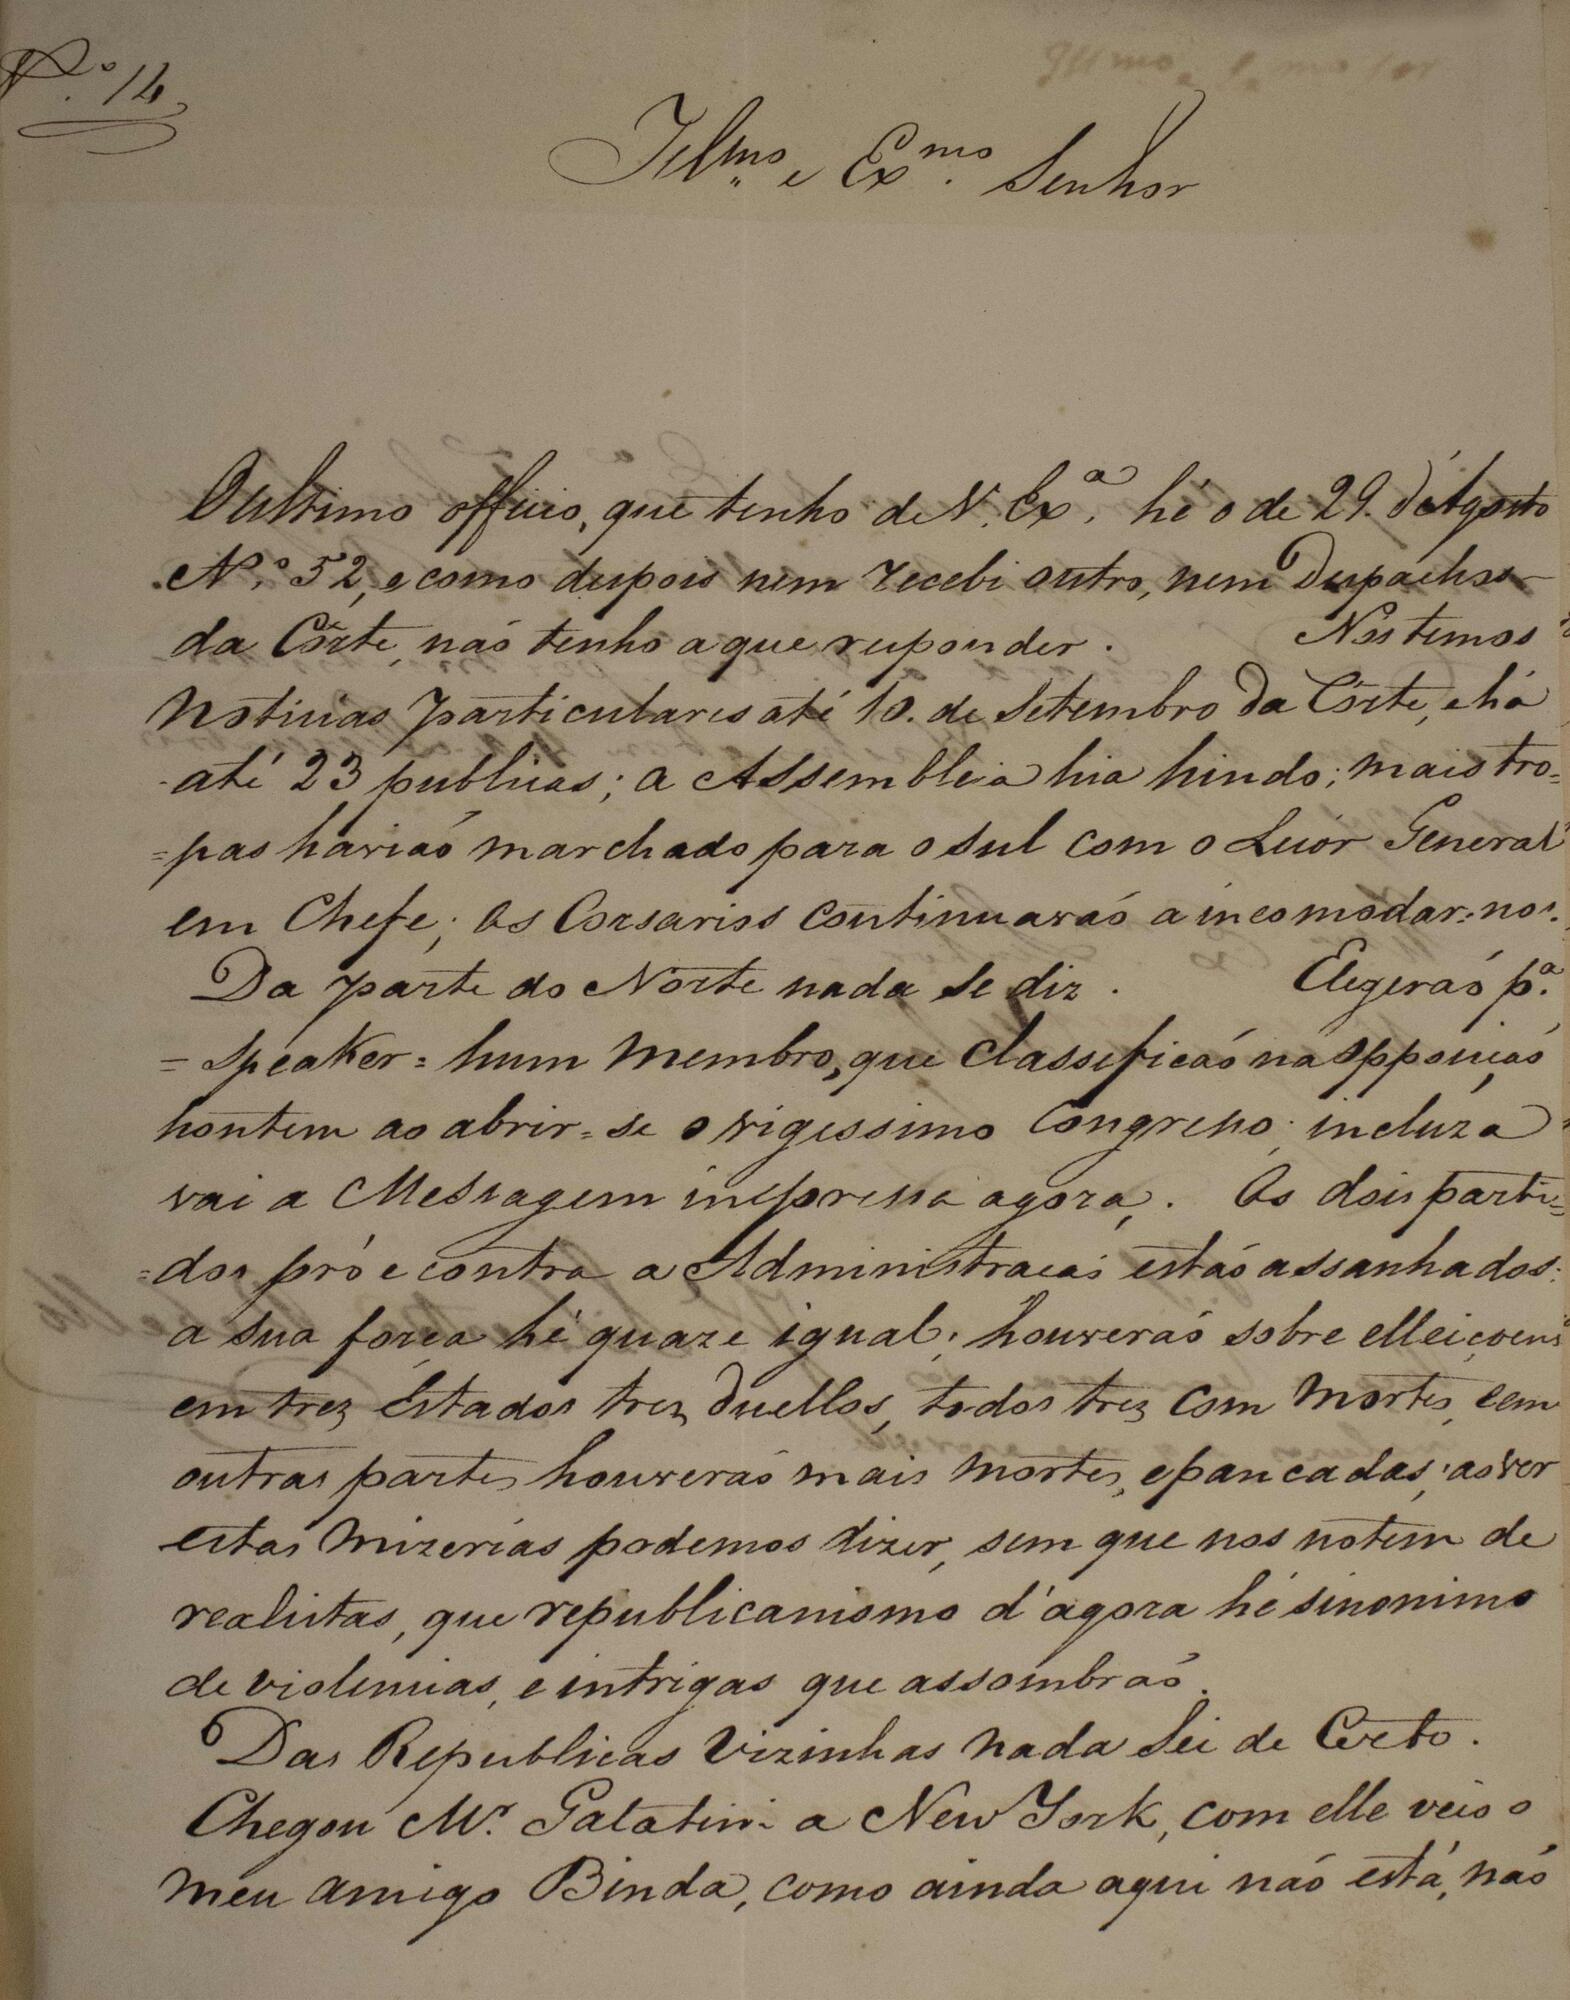 N.º 14
Illmo e Exmo. Senhor
O ultimo officio, que tenho de V. Ex.ª hé o de 29. d'Agosto
N.º 52, e como depois nem recebi outro, nem Despacho
da Côrte, não tenho a que responder. Nos temos
noticias particulares até 10. de Setembro da Côrte, e há
até 23 publicas; a Assembleia hia hindo; mais tro=
=pas havião marchado para o sul com o Leior General
em Chefe; os Corsarios continuavão a incomodar-nos.
Da parte do Norte nada se diz. Elegerão p.ª
=Speaker= hum membro, que classificão na Opposição
hontem ao abrir-se o vigessimo Congresso; incluza
vai a Messagem impressa agora. Os dois parti=
=dos pró e contra a Administração estão assanhados:
a sua força hé quaze igual; houverão sobre elleiçoens
em trez Estados trez Duellos, todos trez com mortes, e em
outras partes houverão mais mortes, e pancadas; ao ver
estas mizerias podemos dizer, sem que nos notem de
realistas, que republicanismo d'agora hé sinonimo
de violencias, e intrigas que assombrão.
Das Republicas vizinhas nada sei de Certo.
Chegou Mr. Gallatin a New York, com elle veio o
meu amigo Binda, como ainda aqui não está, não